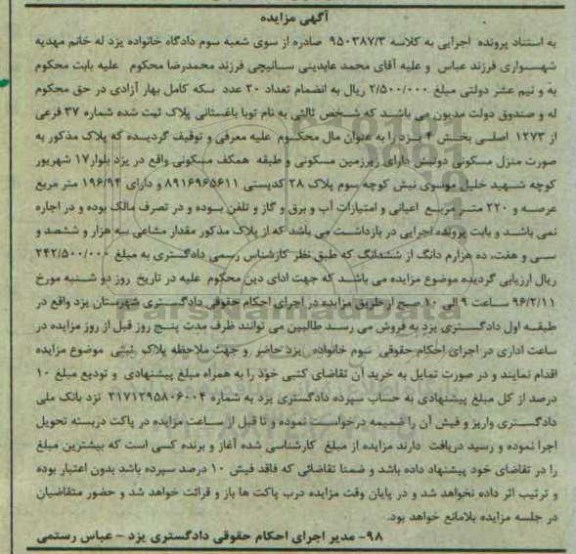 آگهی مزایده
به استناد پرونده اجرایی به کلاسه ۹۵۰۳۸۷/۳ صادره از سوی شعبه سوم دادگاه خانواده یزد له خانم مهدیه
شهسواری فرزند عباس و علیه آقای محمد عابدینی سانیچی فرزند محمدرضا محکوم علیه بابت محکوم
به و نیم عشر دولتی مبلغ ۲/۵۰۰/۰۰۰ ریال به انضمام تعداد ۲۰ عدد سکه کامل بهار آزادی در حق محکوم
له و صندوق دولت مدیون می باشند که شخص ثالثی به نام توبا باغستانی پلاک ثبت شده شماره ۳۷ فرعی
از ۱۲۷۳ اصلی بخش ۴ یزد را به عنوان مال محکوم علیه معرفی و توقیف گردیده که پلاک مذکور به
صورت منزل مسکونی دونبش دارای زیرزمین مسکونی و طبقه همکف مسکونی واقع در یزد بلوار ۱۷ شهریور
کوچه شهید خلیل موسوی نبش کوچه سوم پلاک ۲۸ کدپستی ۸۹۱۶۹۶۵۶۱۱ و دارای ۱۹۶/۹۴ متر مربع
عرصه و ۲۲۰ متر مربع اعیانی و امتیازات آب و برق و گاز و تلفن بوده و در تصرف مالک بوده و در اجاره
نمی باشد و بابت پرونده اجرایی در بازداشت می باشد که از پلاک مذکور مقدار مشاعی سه هزار و ششصد و
سی و هفت، ده هزارم دانگ از ششدانگ که طبق نظر کارشناس رسمی دادگستری به مبلغ ۲۴۲/۵۰۰/۰۰۰
ریال ارزیابی گردیده موضوع مزایده می باشد که جهت ادای دین محکوم علیه در تاریخ روز دو شنبه مورخ
۹۶/۲/۱۱ ساعت ۹ الی ۱۰ صبح از طریق مزایده در اجرای احکام حقوقی دادگستری شهرستان یزد واقع در
طبقه اول دادگستری یزد به فروش می رسد طالبین می توانند ظرف مدت پنج روز قبل از روز مزایده در
ساعت اداری در اجرای احکام حقوقی سوم خانواده یزد حاضر و جهت ملاحظه پلاک ثبتی موضوع مزایده
اقدام نمایند و در صورت تمایل به خرید آن تقاضای کتبی خود را به همراه مبلغ پیشنهادی و تودیع مبلغ ۱۰
درصد از کل مبلغ پیشنهادی به حساب سپرده دادگستری یزد به شماره ۲۱۷۱۲۹۵۸۰۶۰۰۴ نزد بانک ملی
دادگستری واریز و فیش آن را ضمیمه درخواست نموده و تا قبل از ساعت مزایده در پاکت دربسته تحویل
اجرا نموده و رسید دریافت دارند مزایده از مبلغ کارشناسی شده آغاز و برنده کسی است که بیشترین مبلغ
را در تقاضای خود پیشنهاد داده باشد و ضمنا تقاضائی که فاقد فیش ۱۰ درصد سپرده باشد بدون اعتبار بوده
و ترتیب اثر داده نخواهد شد و در پایان وقت مزایده درب پاکت ها باز و قرائت خواهد شد و حضور متقاضیان
در جلسه مزایده بلامانع خواهد بود.
۹۸- مدیر اجرای احکام حقوقی دادگستری یزد - عباس رستمی
ParsNamadData